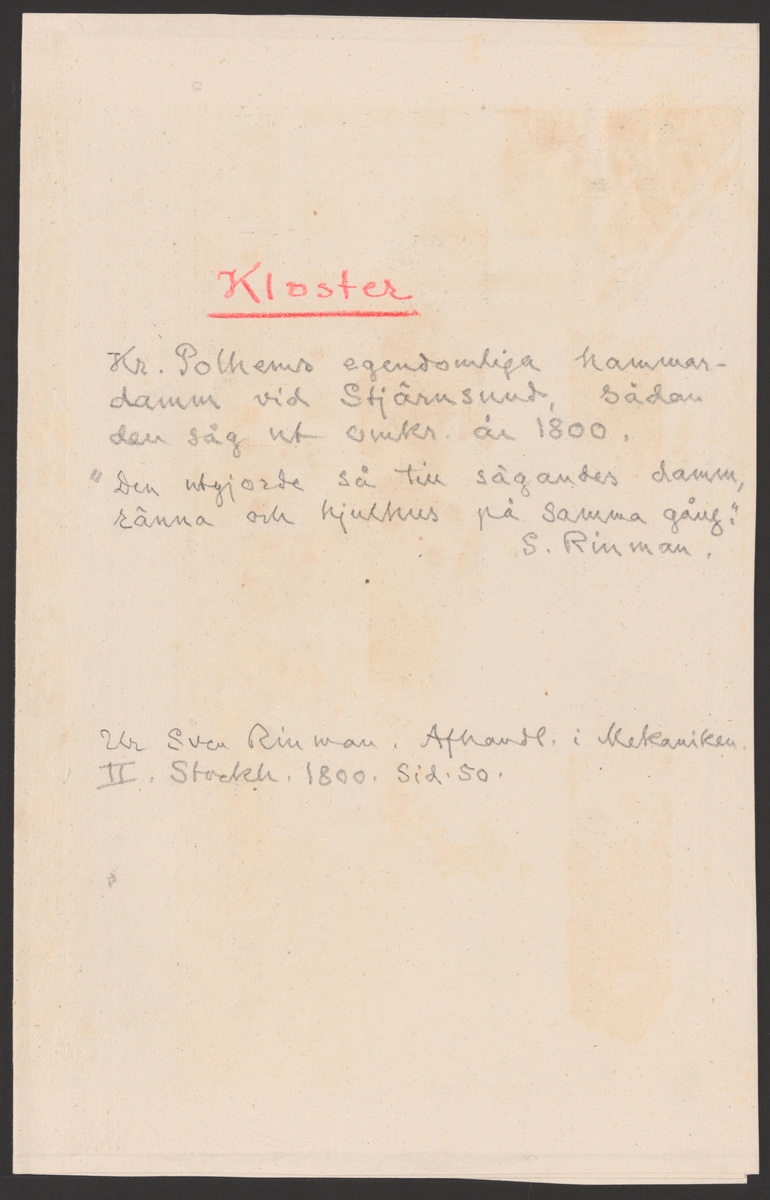 Kloster
Kr. Polhems egendomliga hammar-
damm vid Stjärnsund, sådan
den såg ut omkr. år 1800.
"Den utgjorde så till sägandes damm,
ränna och hjulhus på samma gång."
S. Rinman.
Ur Sven Rinman. Afhandl. i Mekaniken.
II. Stockh. 1800. Sid. 50.